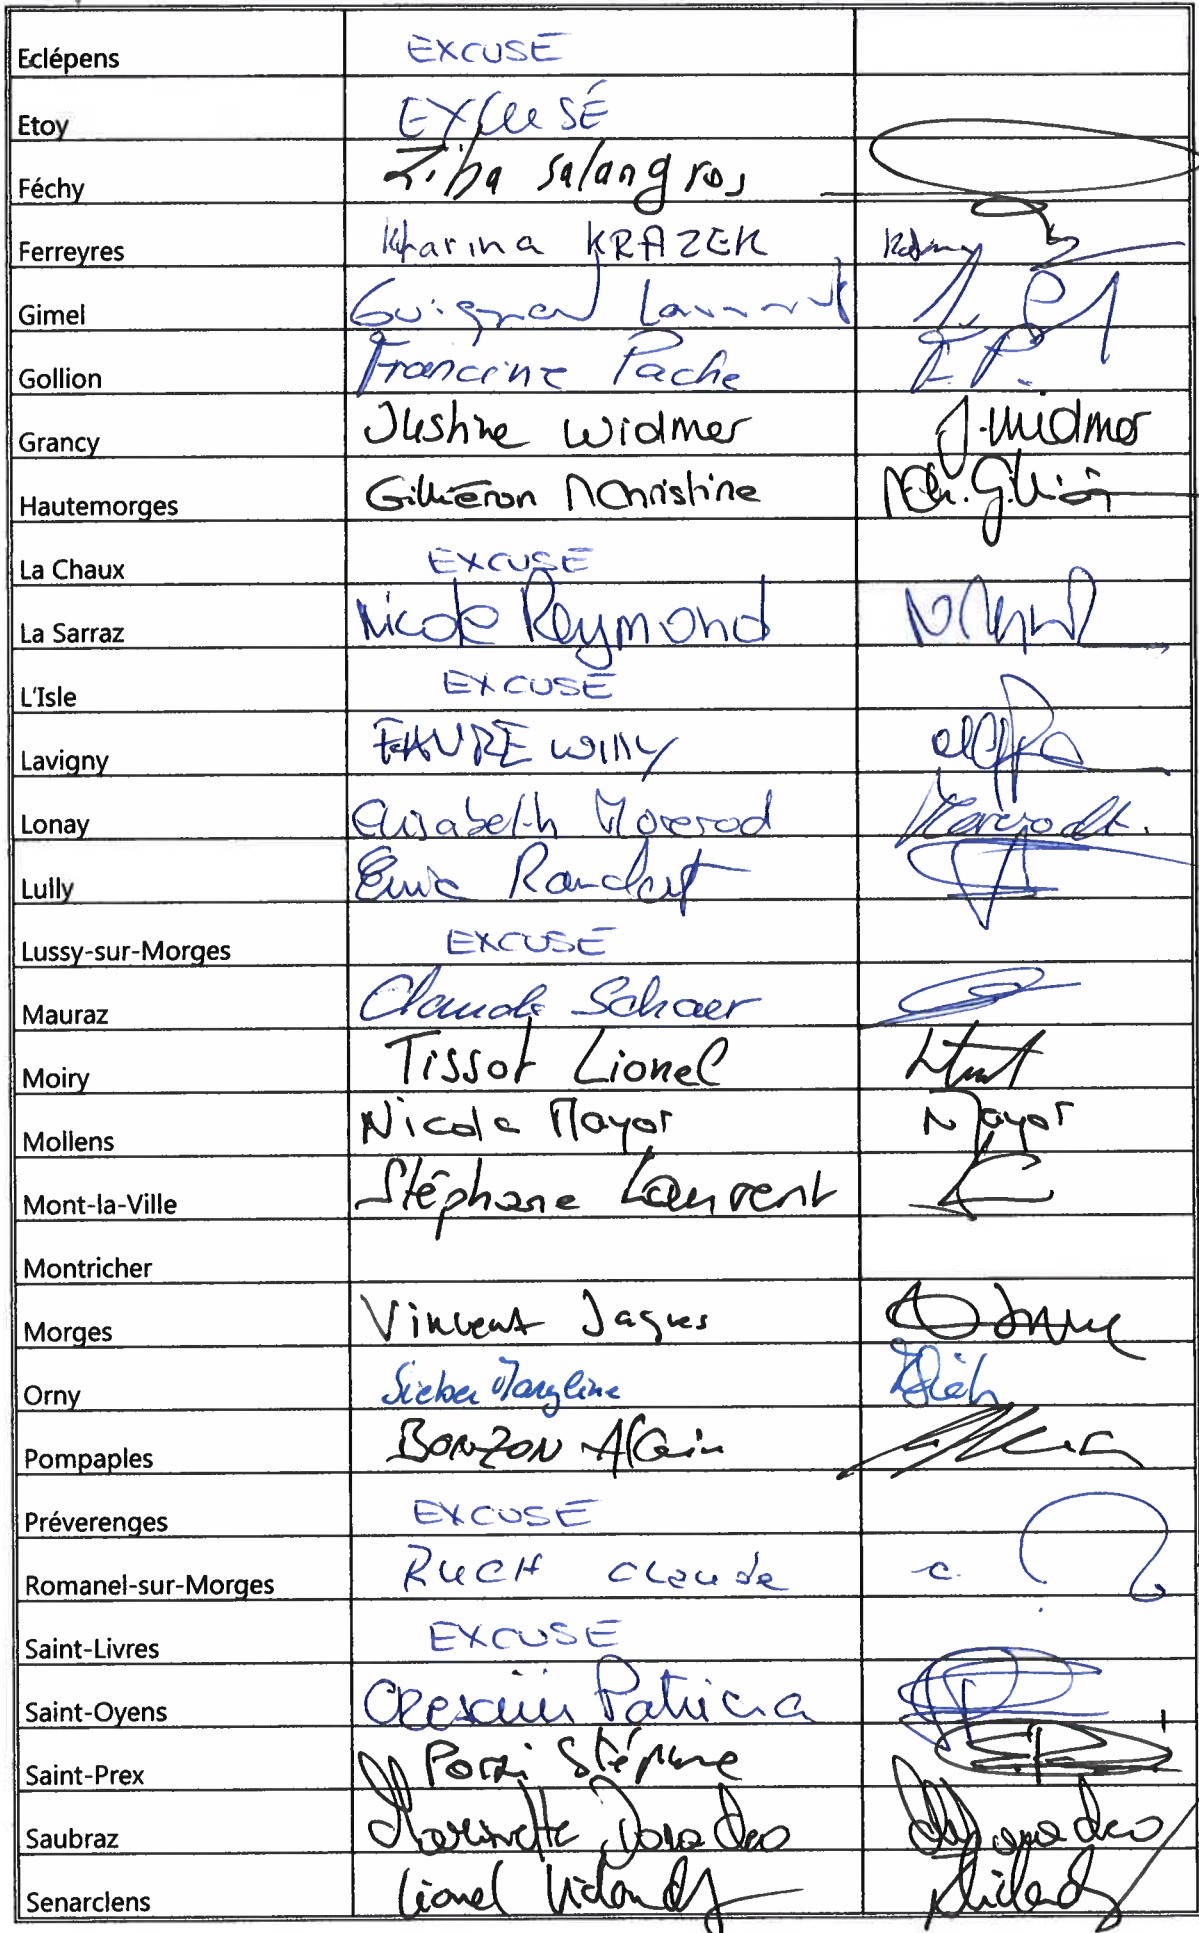 Eclépens EXCUSÉ
Etoy EXCUSÉ
Féchy Ziba Salangros
Ferreyres Kharina KRAZER
Gimel Guignard Laurent
Gollion Francine Pache F. P.
Grancy Justine Widmer J. Widmer
Hautemorges Gilliéron MChristine
La Chaux EXCUSÉ
La Sarraz Nicole Reymond
L'Isle EXCUSÉ
Lavigny FAVRE Willy
Lonay Elisabeth Morerod
Lully
Lussy-sur-Morges EXCUSÉ
Mauraz Claude Schaer
Moiry Tissot Lionel
Mollens Nicole Mayor N Mayor
Mont-la-Ville Stéphane Laurent
Montricher
Morges Vincent Jaques
Orny Sieber Maryline
Pompaples BONZON Alain
Préverenges EXCUSÉ
Romanel-sur-Morges RUCH Claude
Saint-Livres EXCUSÉ
Saint-Oyens Patricia
Saint-Prex Porzi Stéphane
Saubraz
Senarclens Lionel